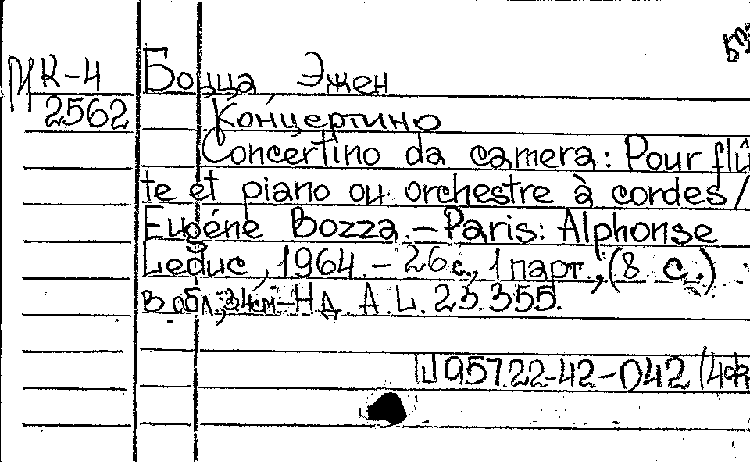 К-4 Боцца, Эжен
2562 Концертино
Concertino da camera: Pour flû
te et piano ou orchestre à cordes /
Eugéne Bozza. – Paris: Alphonse
Leduc, 1964. – 26 с., 1 парт., (8 с.)
в обл.; 34 см – Н.д. A. L. 23.355.
95722-42-042 (4ф